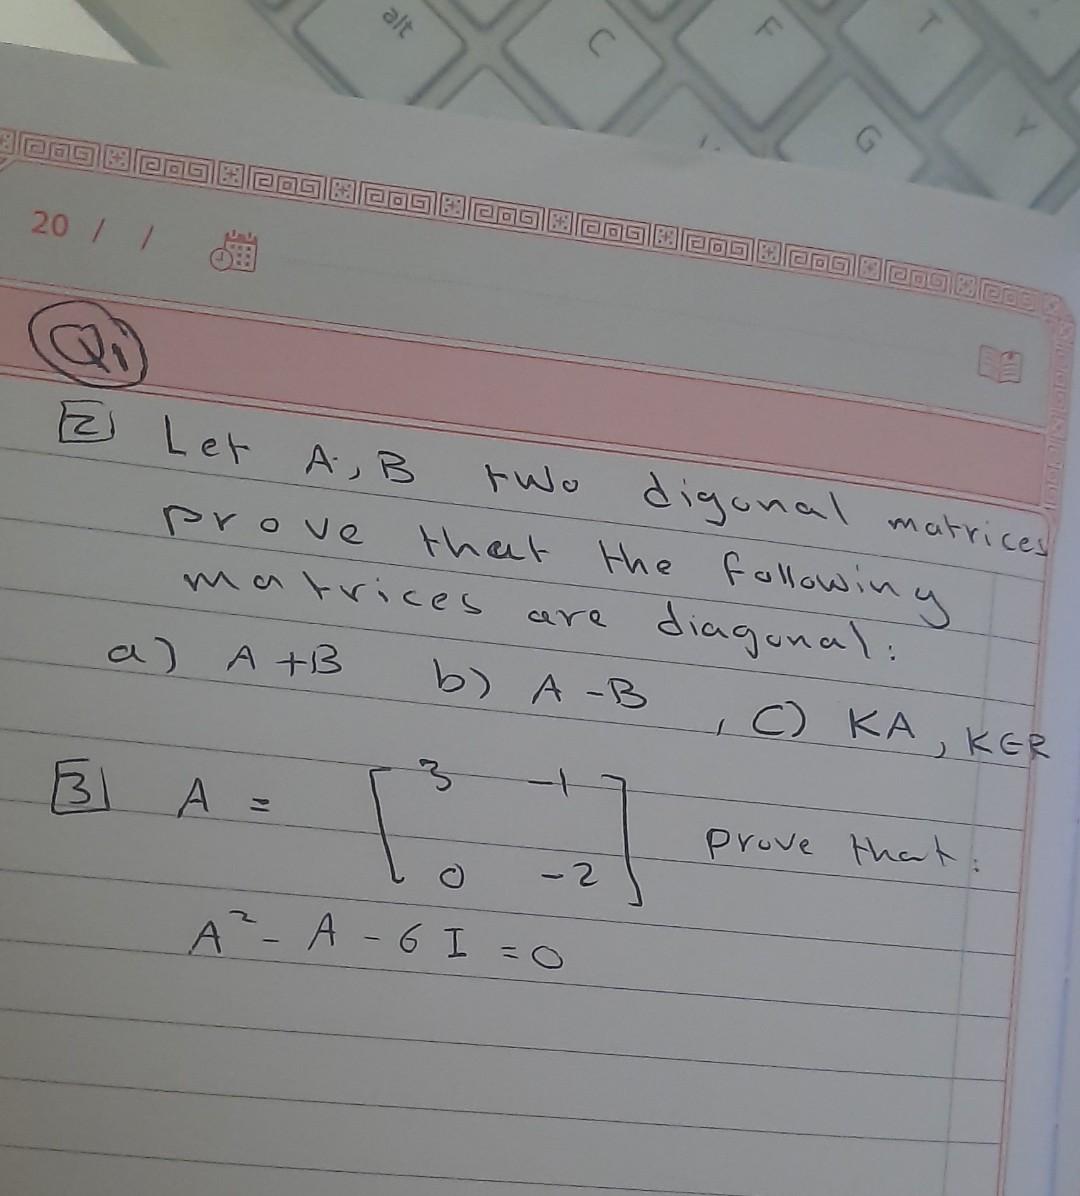 alt
C
F
T
G
Y
20 / /
Q1
2 Let A, B two digonal matrices
prove that the following
matrices are diagonal:
a) A+B b) A-B , C) KA, K∈R
3 A = [3 -1
0 -2] prove that:
A² - A - 6 I = 0